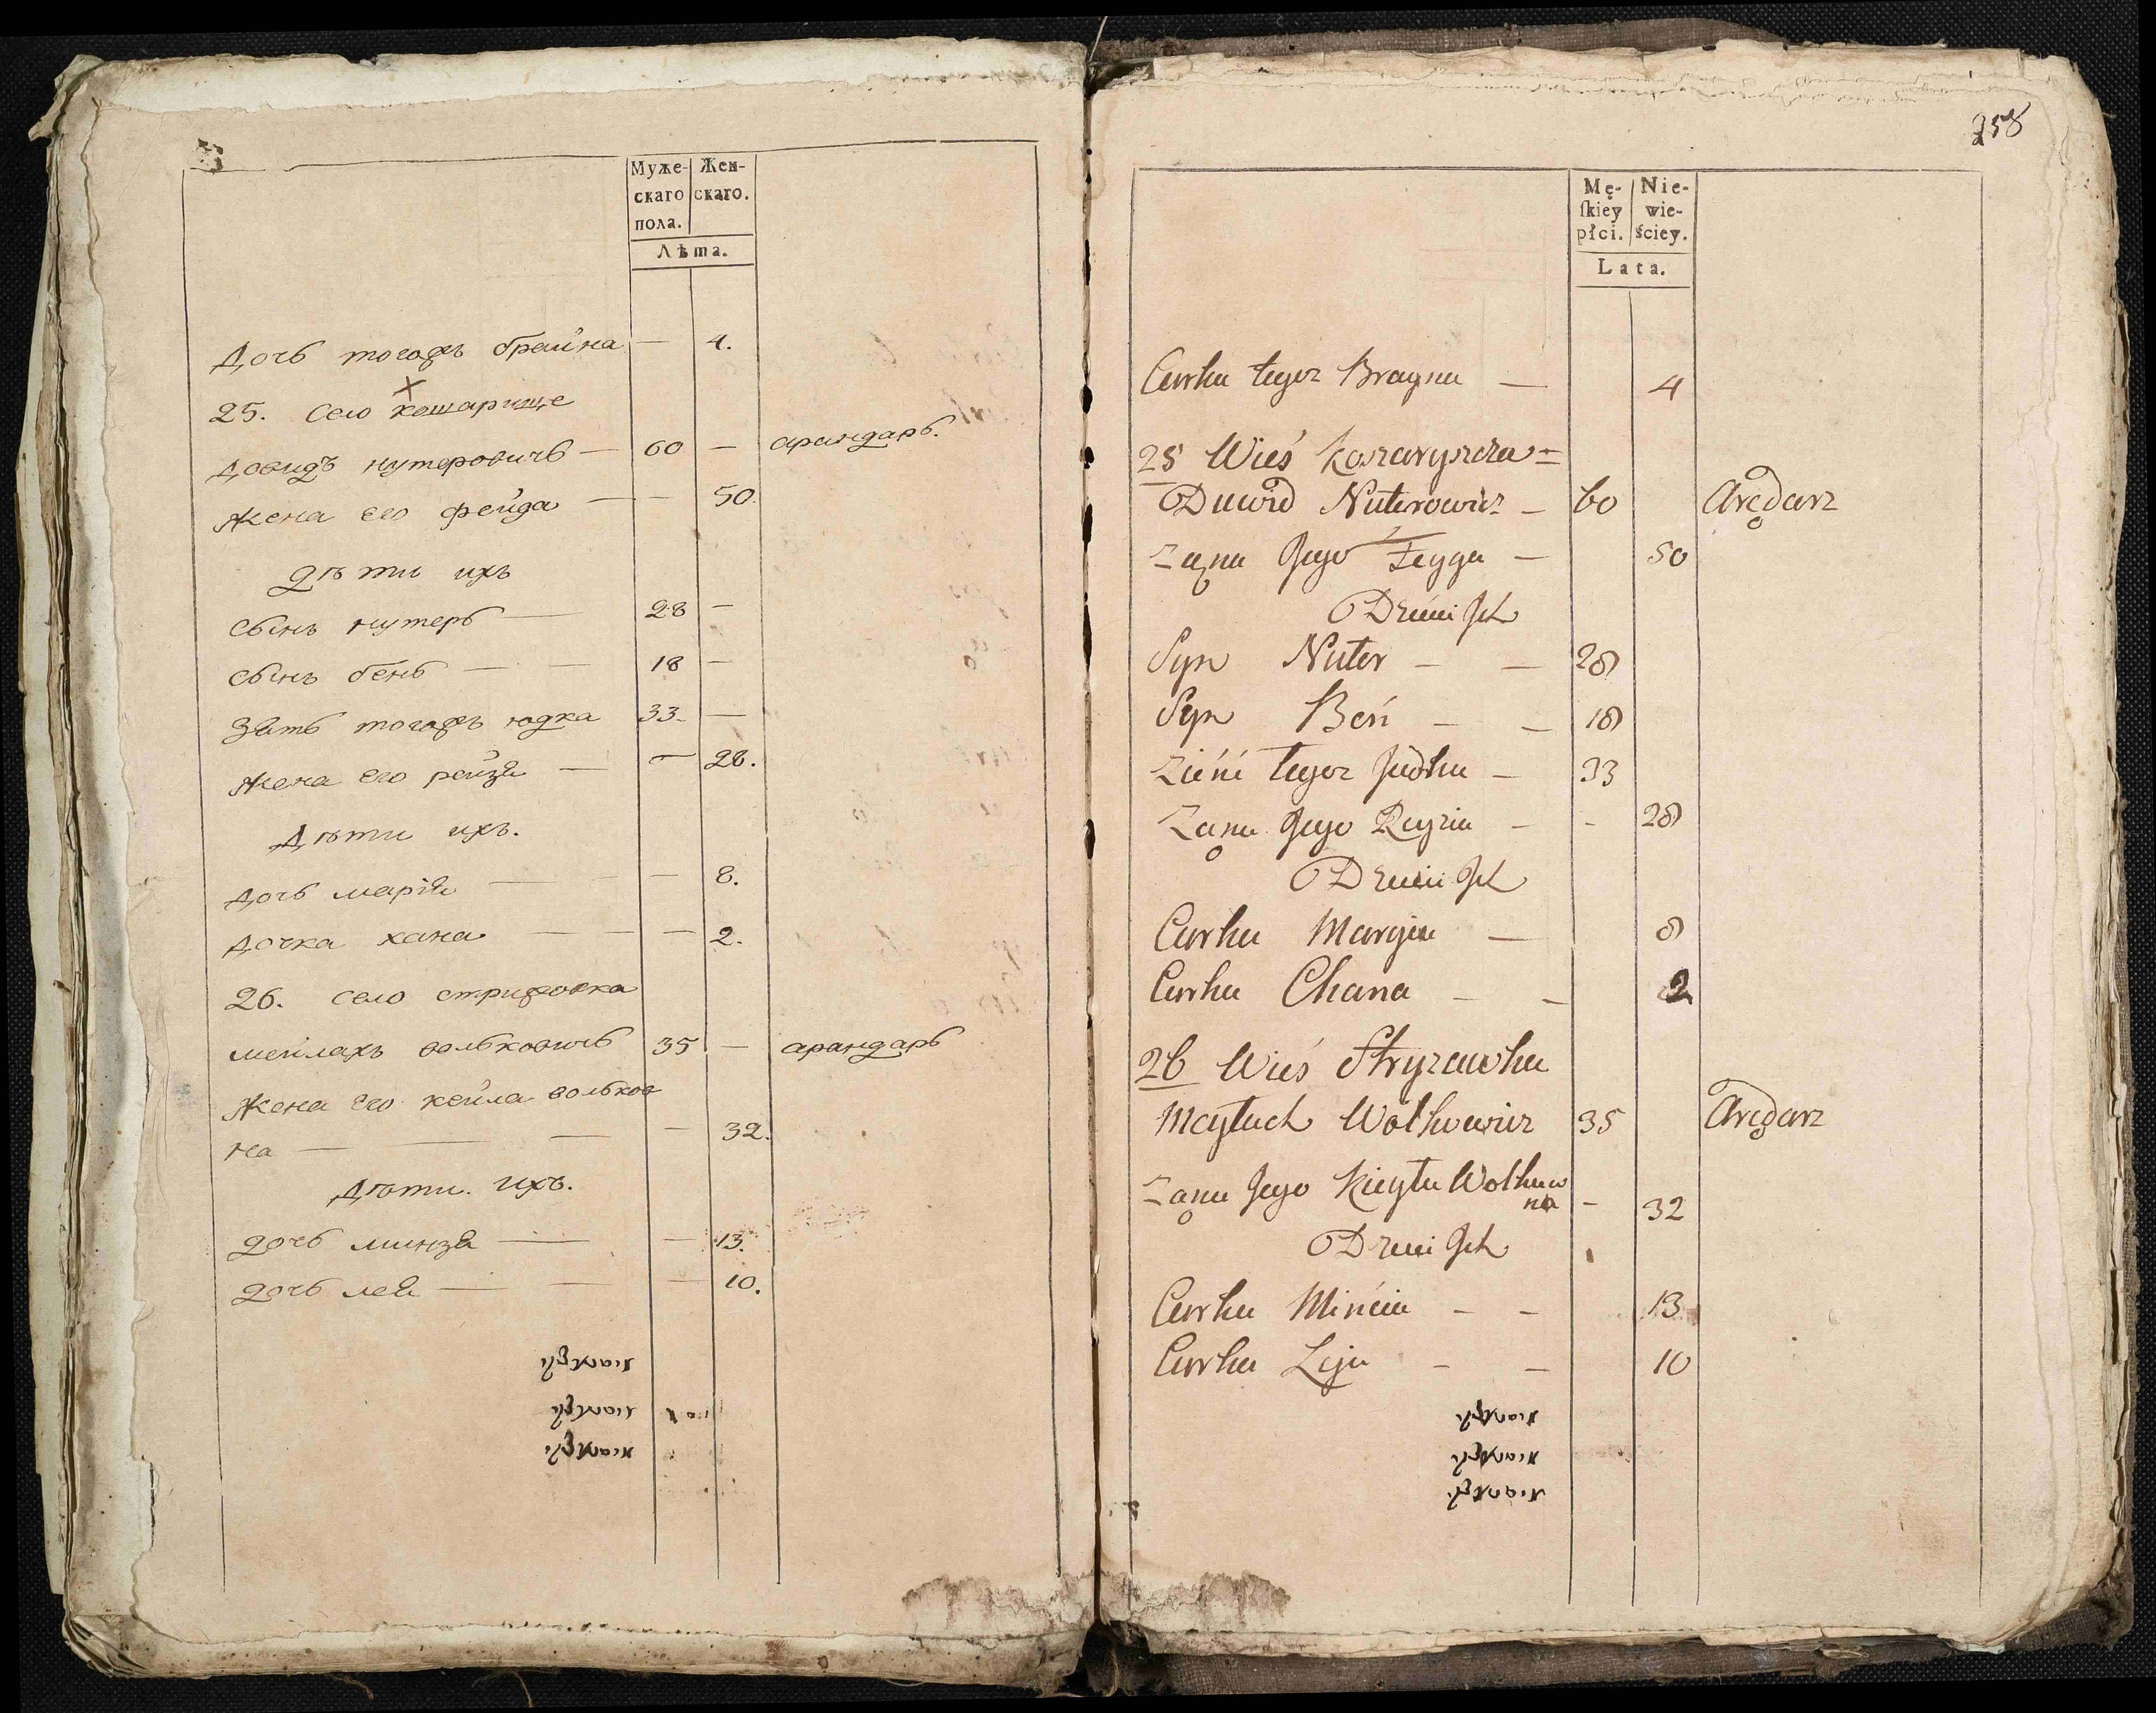 Муже-
скаго
пола.
Жен-
скаго.
Лѣта.
Дочь тогожъ брайна — 4.
25. Село кошарище
х
Довидъ нутеровичь — 60 — арандарь.
Жена его фейга — — 50.
Дѣти ихъ
Сынъ нутерь — 28 —
Сынъ бень — — 18 —
Зять тогожъ юдка 33. —
Жена его рейзя — — 28.
Дѣти ихъ.
Дочь марія — — — 8.
Дочка хана — — — 2.
26. село стрижовка
мейлахъ волковичь 35 — арандарь
Жена его кейла волков
на — — — — 32.
Дѣти ихъ.
Дочь минзя — — 13.
Дочь лея — — — 10.
258
Mę-
ſkiey
płci.
Nie-
wie-
ściey.
Lata.
Curka tegoz Brayna — 4
25 Wieś Koszaryszcza =
Dawid Nuterowicz — 60 Arędarz
Zona Jego Feyga — 50
Dzieci Ich
Syn Nuter — — 28
Syn Beń — — 18
Zieńć tegoz Judka — 33
Zona Jego Reyzia — - 28
Dzieci Ich
Curka Maryia — 8
Curka Chana — — 2
26 Wieś Stryzawka
Meyłach Wolkowicz 35 Arędarz
Zona Jego Kieyła Wolkow
na - 32
Dzieci Ich
Curka Mińcia — — 13
Curka Leja — — 10